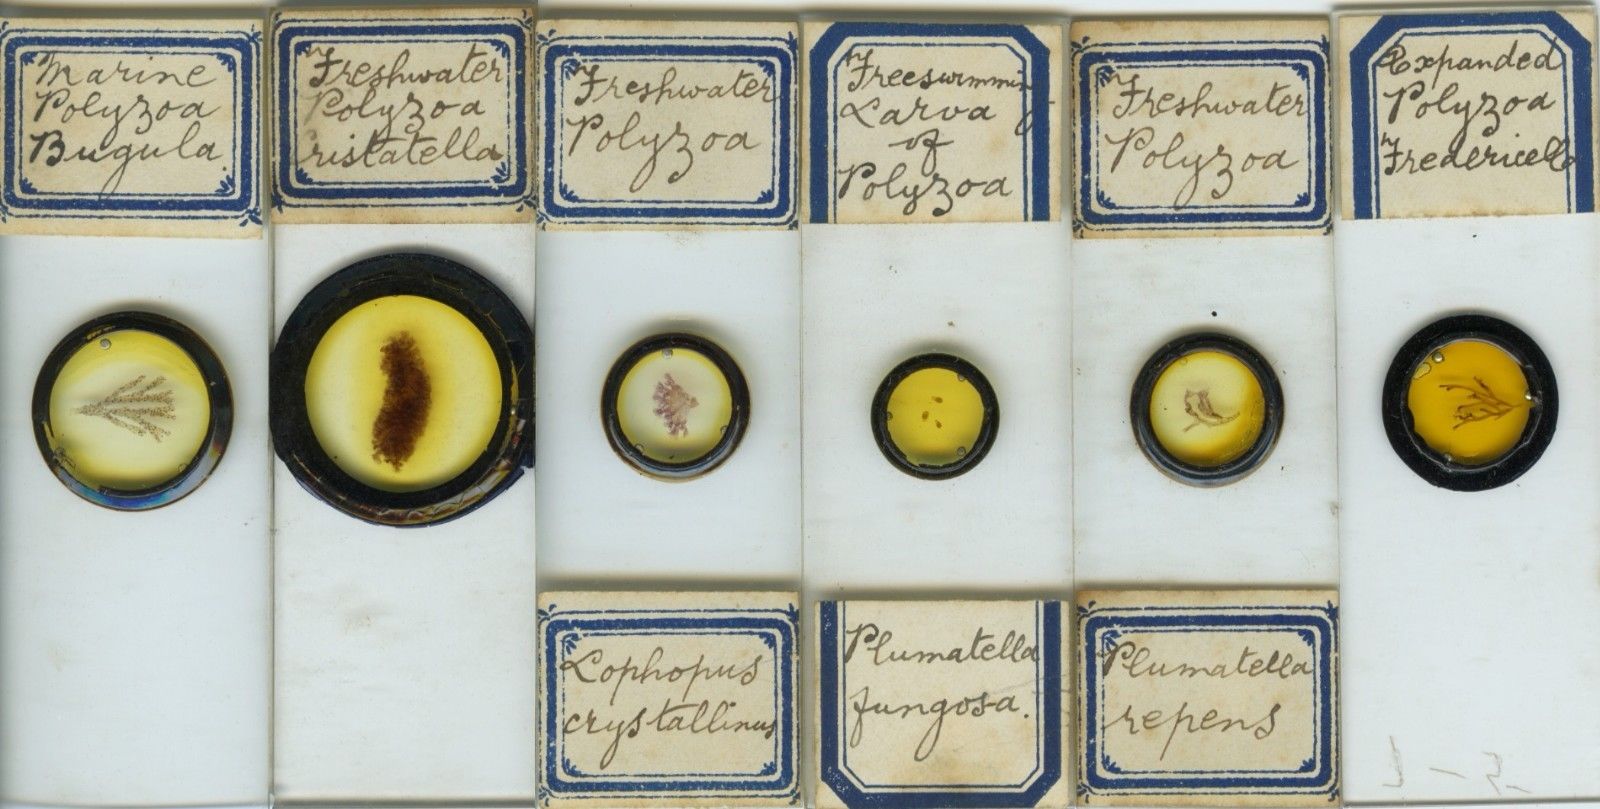 Marine
Polyzoa
Bugula.
Freshwater
Polyzoa
Cristatella
Freshwater
Polyzoa
Lophopus
crystallinus
Freeswimming
Larva
of
Polyzoa
Plumatella
fungosa.
Freshwater
Polyzoa
Plumatella
repens
Expanded
Polyzoa
Fredericella